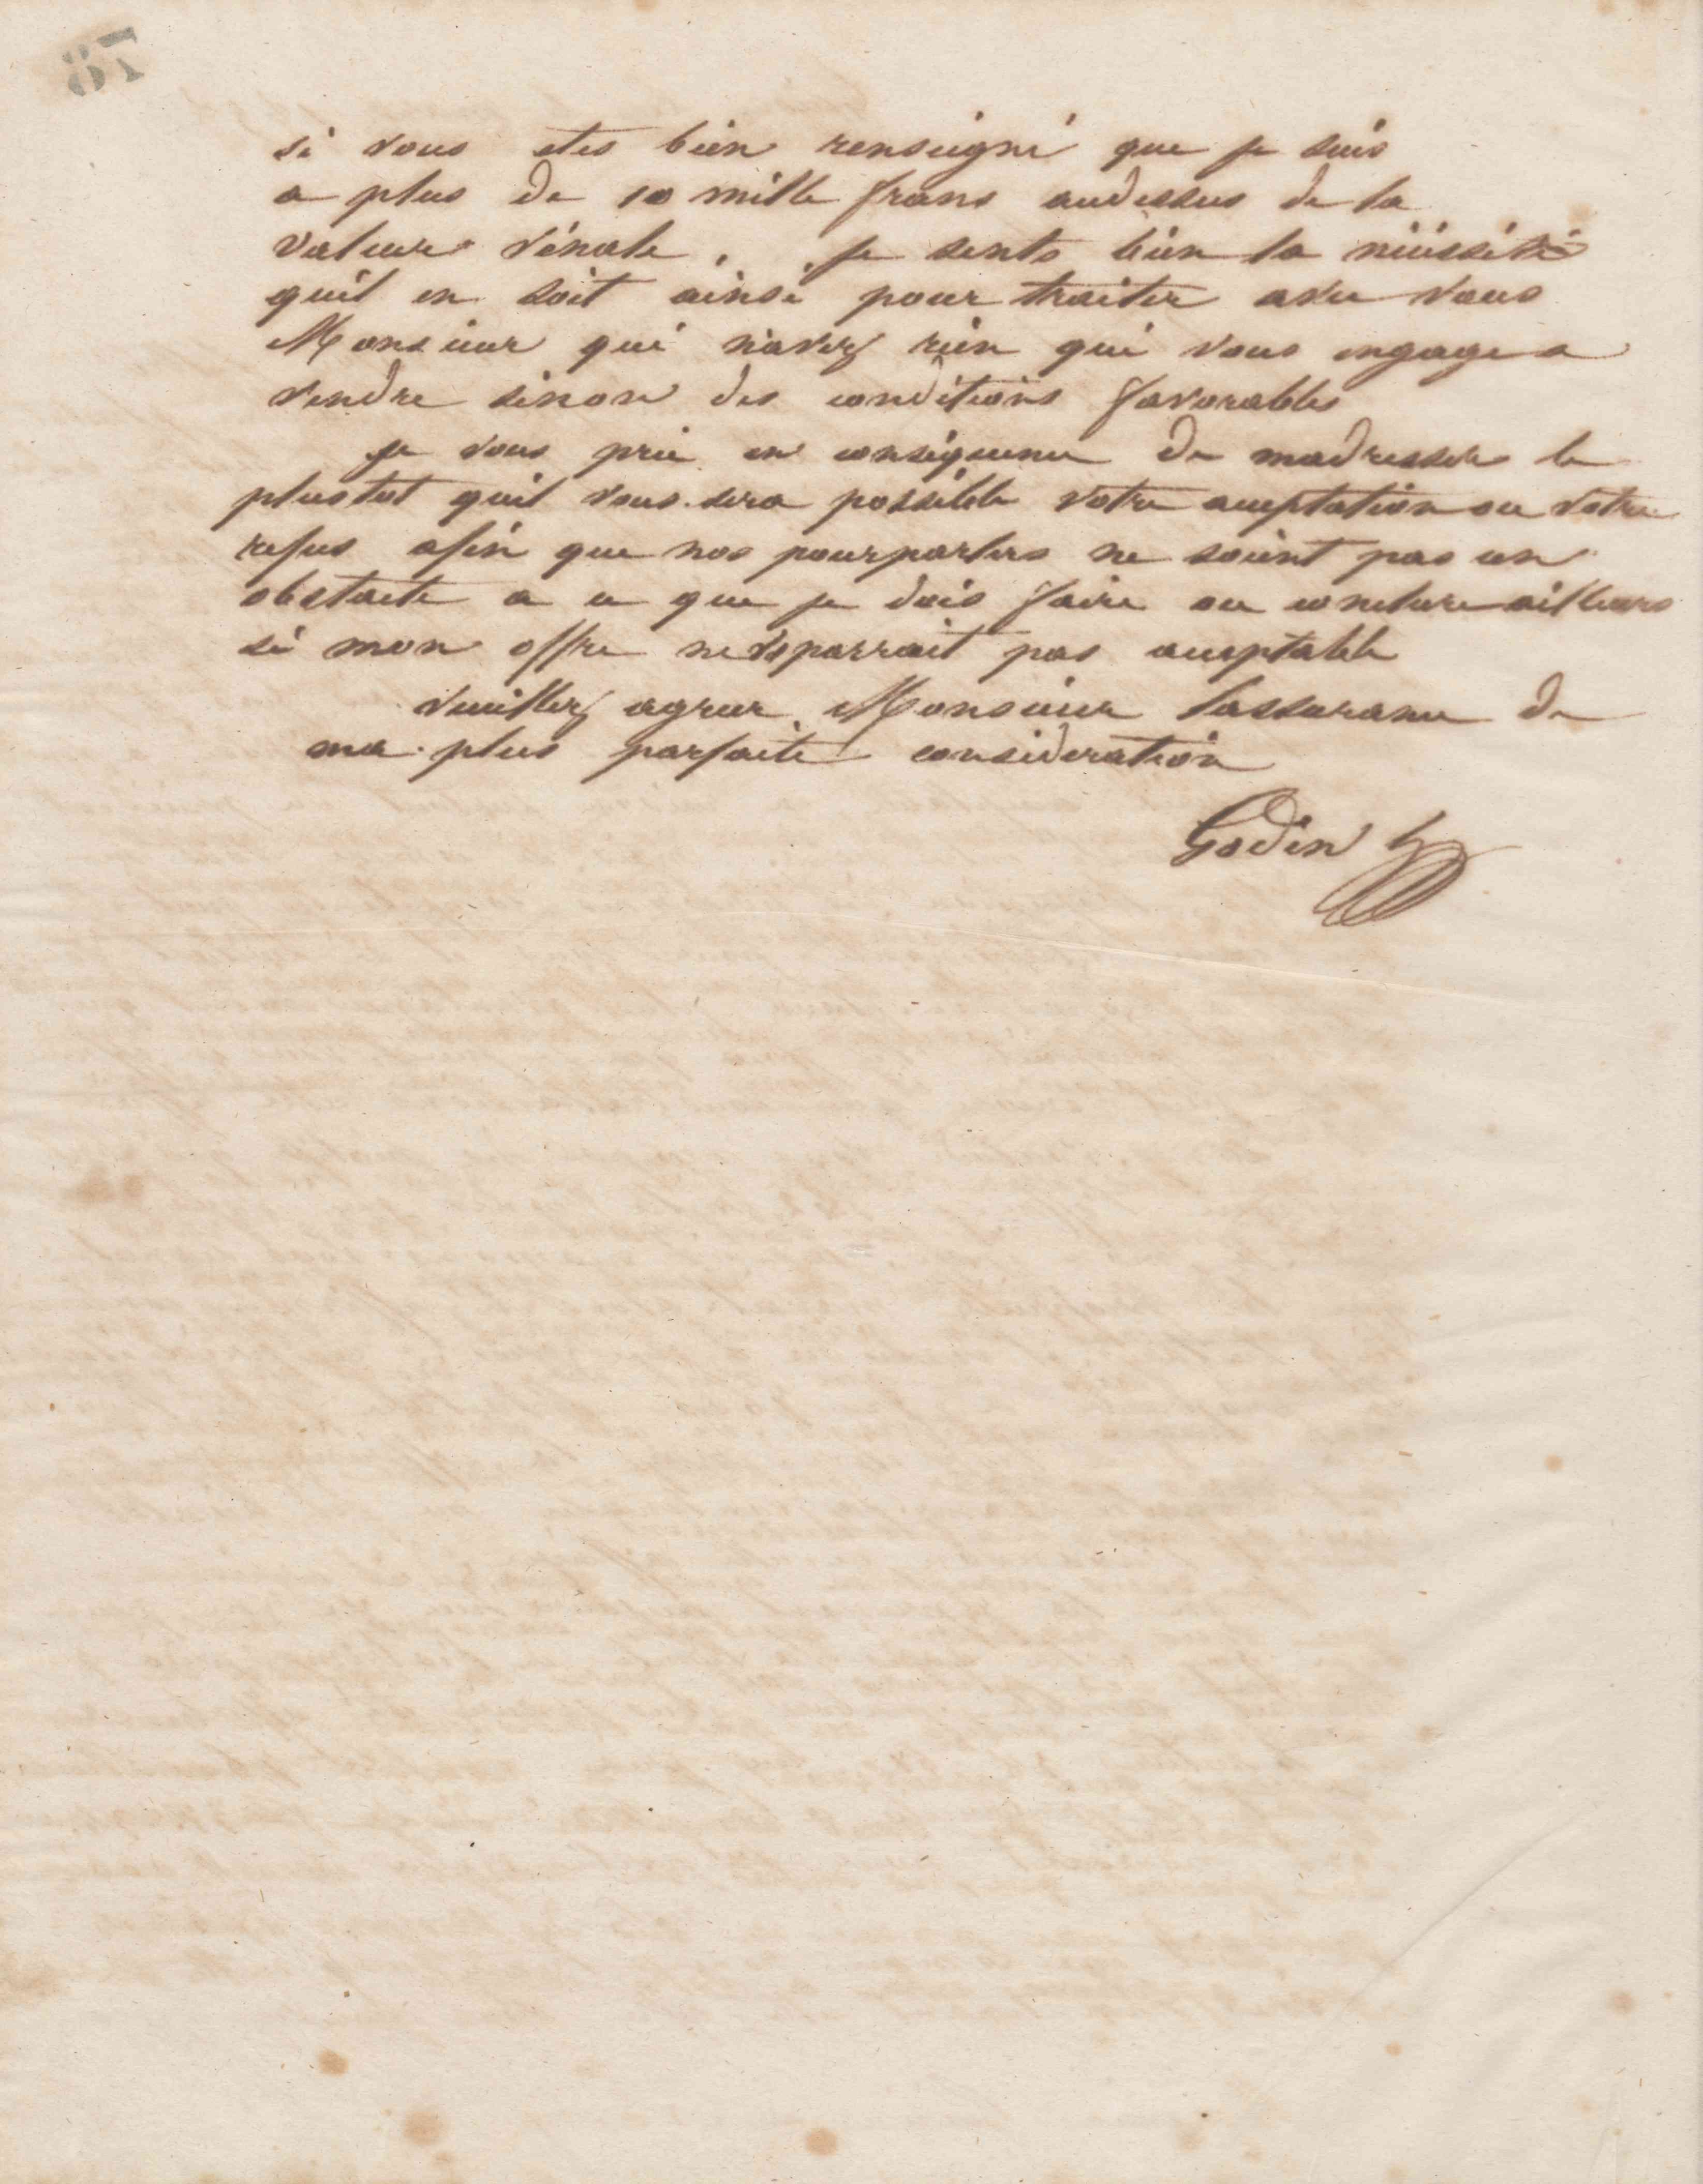 si vous etes bien renseigné que je suis
a plus de 10 mille frans audessus de la
valeur vénale. je sents bien la nécéssité
quil en soit ainsi pour traiter avec vous
Monsieur qui n'avez rien qui vous engage a
vendre sinon des conditions favorables
je vous prie en conséquence de madresser le
plustot quil vous sera possible votre acceptation ou votre
refus afin que nos pourparlers ne soient pas un
obstacle a ce que je dois faire ou conclure ailleurs
si mon offre ne vs parrait pas acceptable
veuillez agreer Monsieur lassurance de
ma plus parfaite consideration
Godin